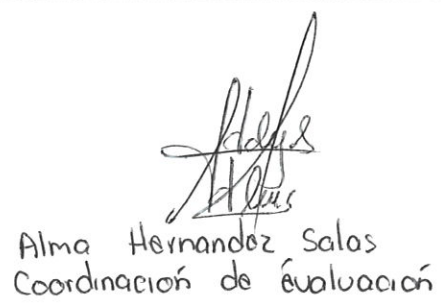 Alma Hernandez Salas
Coordinación de évaluación